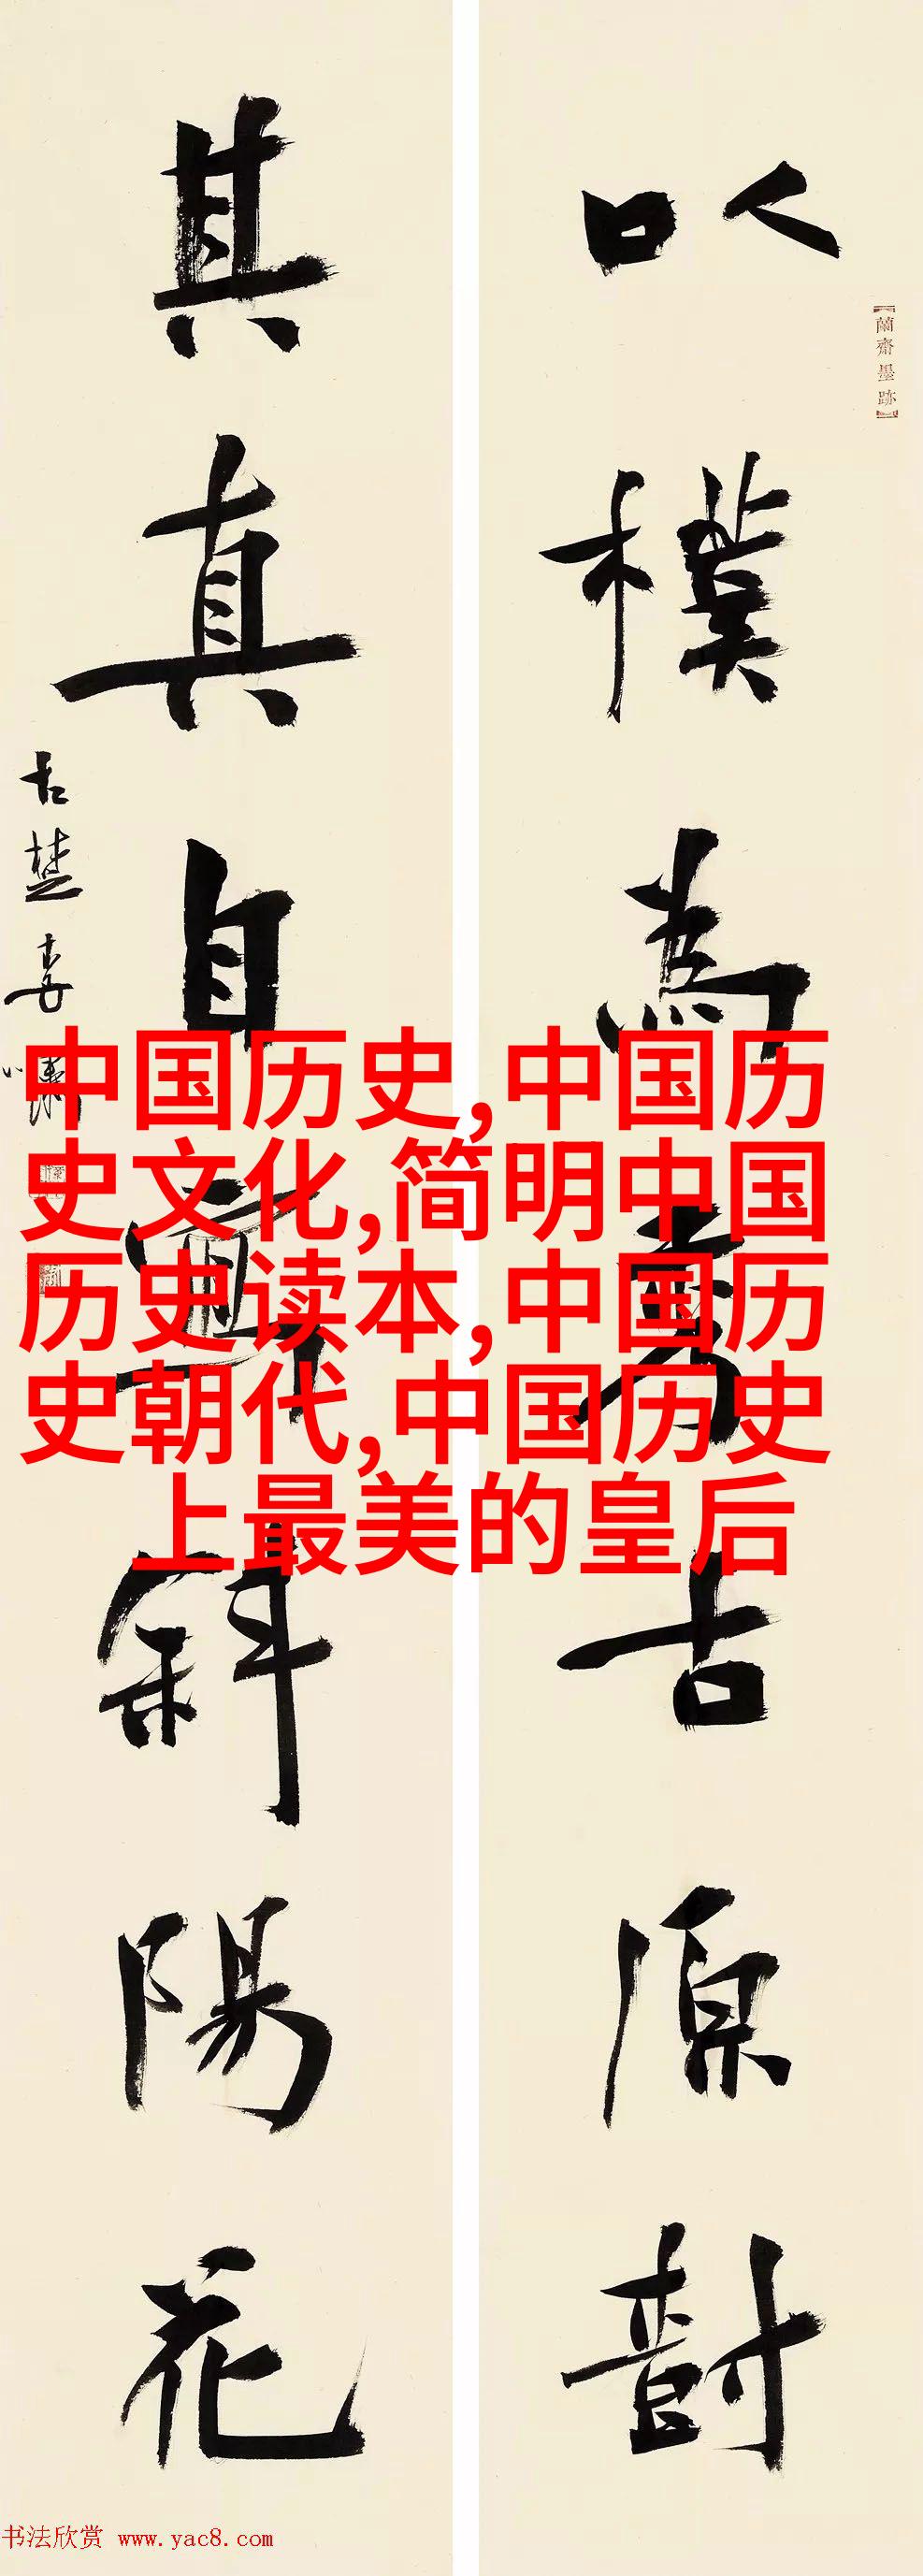 以樸為秀古原尌
【蘭齋墨跡】
其真自寫斜陽花
古楚
中国历史,中国历
史文化,简明中国
历史读本,中国历
史朝代,中国历史
上最美的皇后
书法欣赏 www.yac8.com